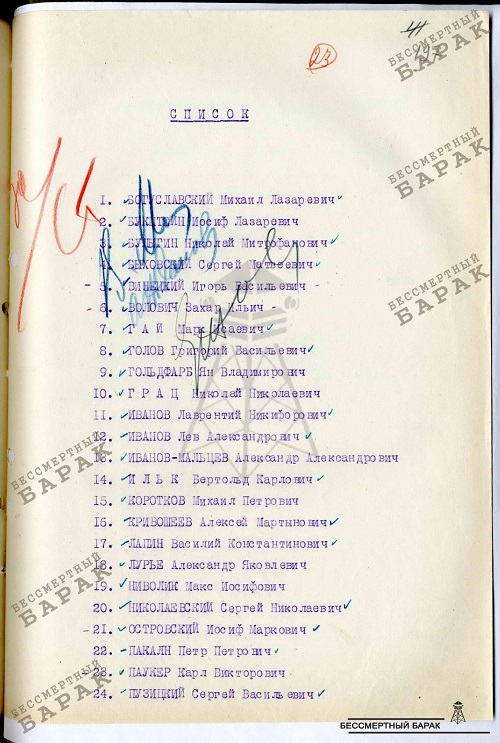 23
41
СПИСОК
1. БОГУСЛАВСКИЙ Михаил Лазаревич
2. БУКШТЕЙН Иосиф Лазаревич
3. БУЛЫГИН Николай Митрофанович
4. БЫХОВСКИЙ Сергей Матвеевич
5. ВИНЕЦКИЙ Игорь Васильевич
6. ВОЛОВИЧ Захар Ильич
7. ГАЙ Марк Исаевич
8. ГОЛОВ Григорий Васильевич
9. ГОЛЬДФАРБ Ян Владимирович
10. ГРАЦ Николай Николаевич
11. ИВАНОВ Лаврентий Никифорович
12. ИВАНОВ Лев Александрович
13. ИВАНОВ-МАЛЬЦЕВ Александр Александрович
14. ИЛЬК Бертольд Карлович
15. КОРОТКОВ Михаил Петрович
16. КРИВОШЕЕВ Алексей Мартынович
17. ЛАПИН Василий Константинович
18. ЛУРЬЕ Александр Яковлевич
19. НИВОЛИК Макс Иосифович
20. НИКОЛАЕВСКИЙ Сергей Николаевич
21. ОСТРОВСКИЙ Иосиф Маркович
22. ПАКАЛН Петр Петрович
23. ПАУКЕР Карл Викторович
24. ПУЗИЦКИЙ Сергей Васильевич
БЕССМЕРТНЫЙ БАРАК
БЕССМЕРТНЫЙ БАРАК
БЕССМЕРТНЫЙ БАРАК
БЕССМЕРТНЫЙ БАРАК
БЕССМЕРТНЫЙ БАРАК
БЕССМЕРТНЫЙ БАРАК
БЕССМЕРТНЫЙ БАРАК